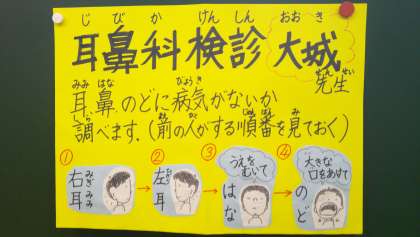 じびかけんしん おおき
耳鼻科検診 大城
せんせい
先生
みみ はな びょうき
耳、鼻、のどに病気がないか
しら まえ ひと じゅんばん み
調べます。(前の人がする順番を見ておく)
① ② ③ ④
みぎみみ
右耳
左耳
うえを
むいて
はな
大きな
口をあけて
のど